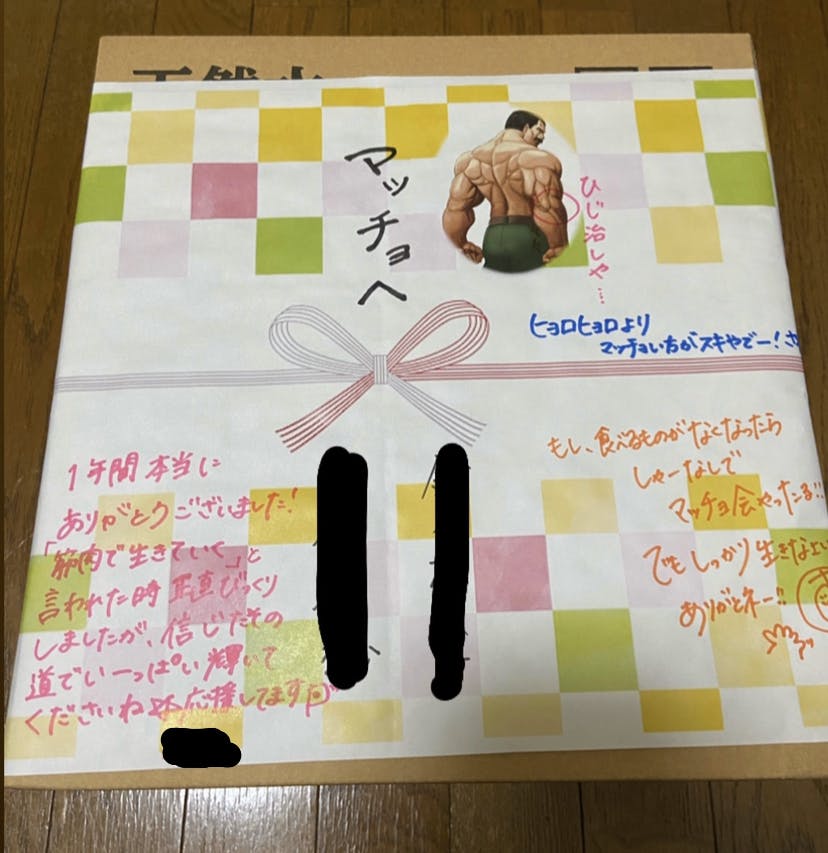 天然水
マッチョへ
ひじ治しや…
ヒョロヒョロより
マッチョい方がスキやでー!
1年間本当に
ありがとうございました!
「筋肉で生きていく」と
言われた時正直びっくり
しましたが、信じたその
道でいーっぱい輝いて
くださいね 応援してます
もし、食べるものがなくなったら
しゃーなしで
マッチョ会やったる!!
でもしっかり生きなよい
ありがとネー!!